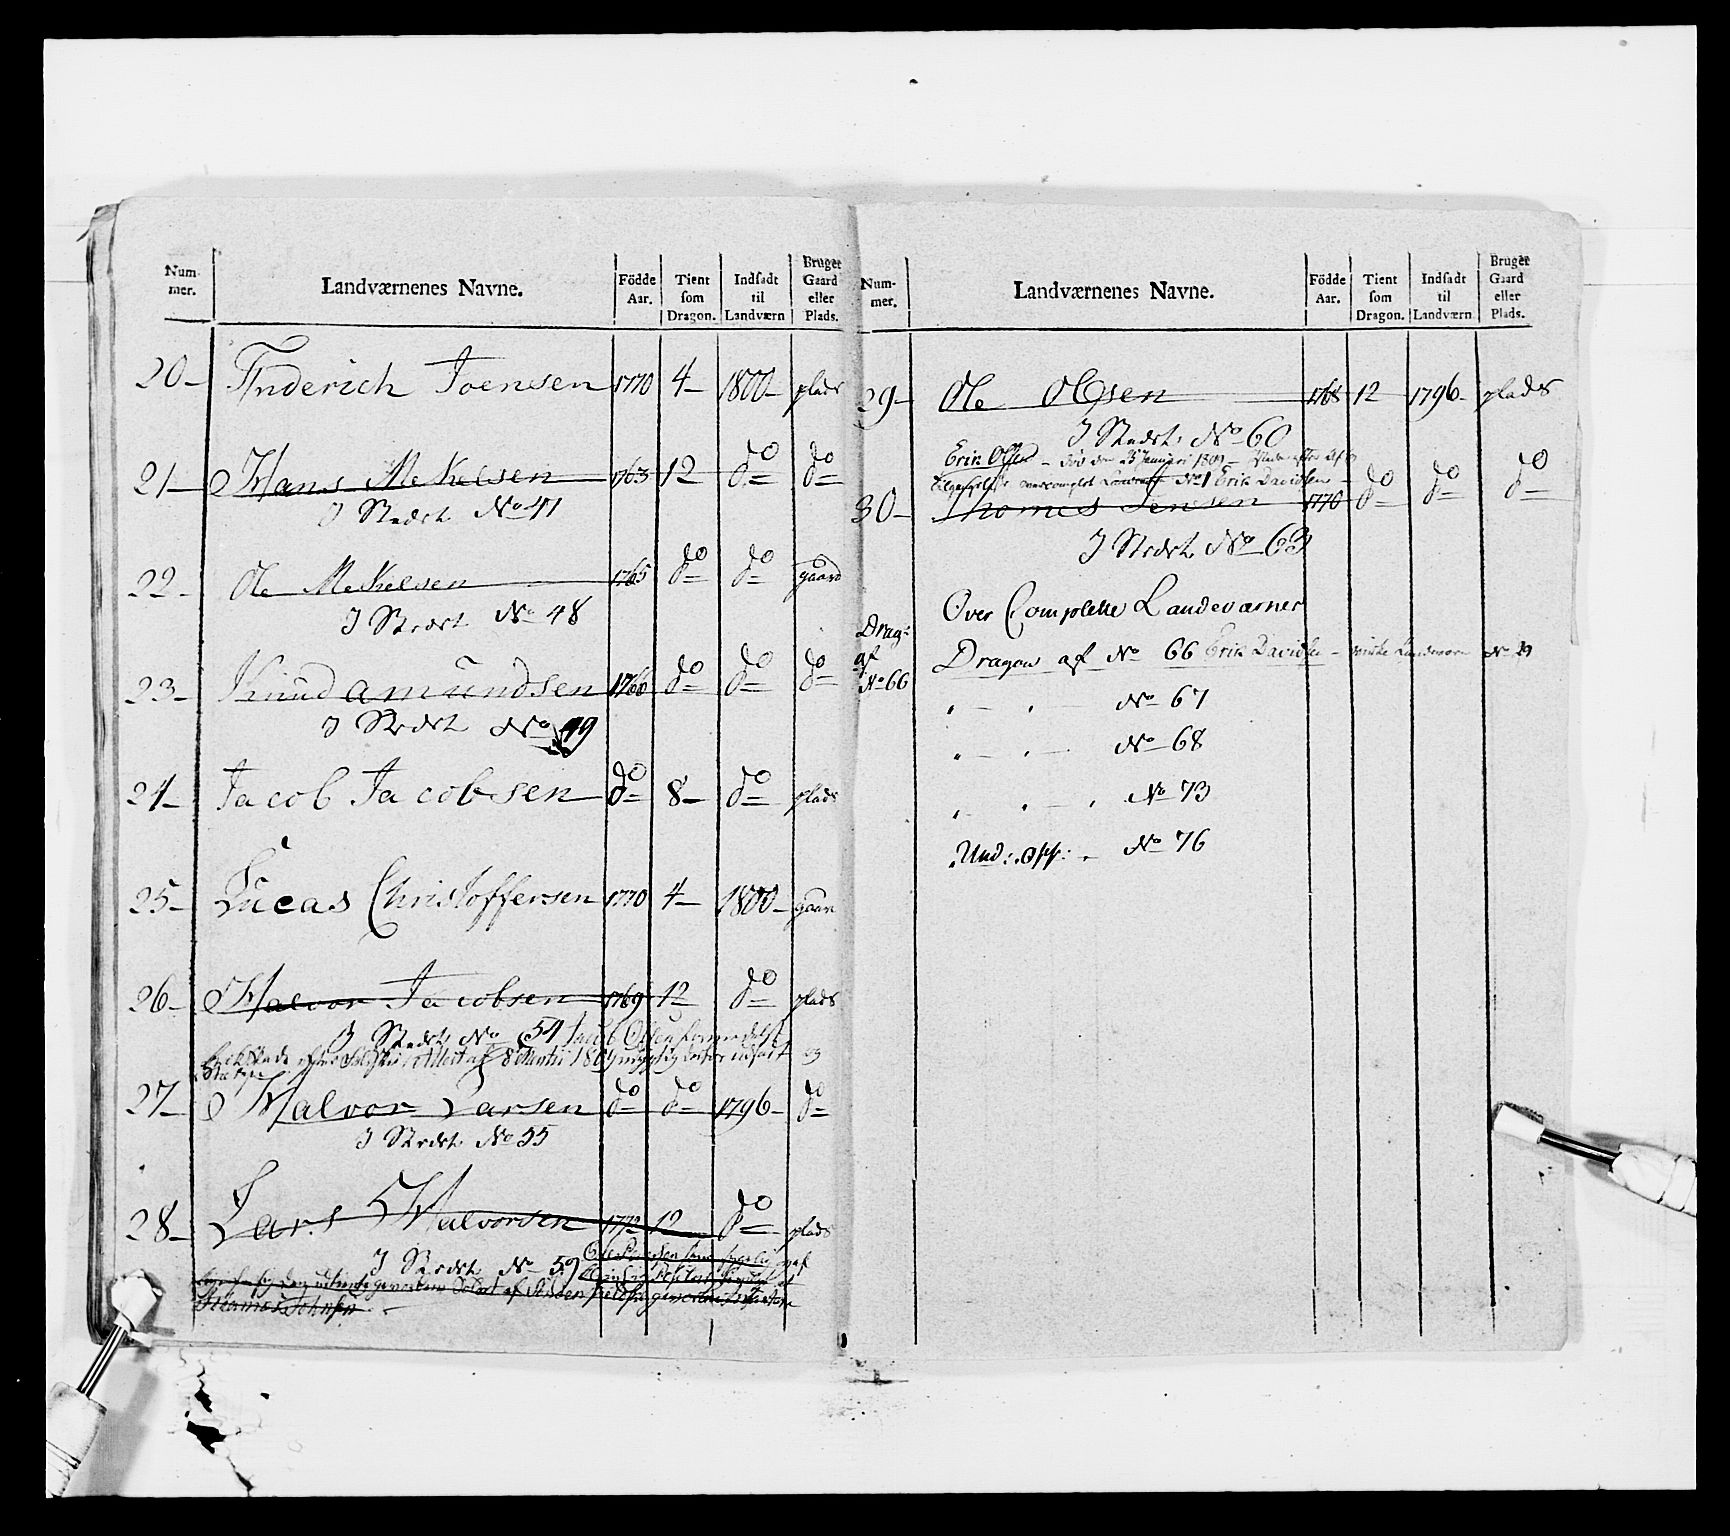 Num-
mer.
Landværnenes Navne.
Födde
Aar.
Tient
som
Dragon.
Indsadt
til
Landværn
Bruger
Gaard
eller
Plads.
20 Friderich Joensen 1770 4 1800 plads
21 Hans Mekelsen 1763 12 do do
I Stedet No 47
22 Ole Mekelsen 1765 do do gaard
I Stedet No 48
23 Knud amundsen 1766 do do do
I Stedet No 49
24 Jacob Jacobsen do 8 do plads
25 Lucas Christoffersen 1770 4 1800 gaard
26 Halvor Jacobsen 1769 12 do plads
I Stedet No 54 Jacob Olsen
27 Halvor Larsen do do 1796 do
I Stedet No 55
28 Lars Halvorsen 1772 12 do plads
I Stedet No 59
Num-
mer.
Landværnenes Navne.
Födde
Aar.
Tient
som
Dragon.
Indsadt
til
Landværn
Bruger
Gaard
eller
Plads.
29 Ole Olsen 1768 12 1796 plads
I Stedet No 60
Erik Olsen død den 25 Januarii
No 1 Erik Davidsen
30 Thomes Jensen 1770 do do do
I Stedet No 63
Over Complette Landeværner
Drag:
af
No 66
Dragon af No 66 Erik Davidsen
No 67
No 68
No 73
Und: opp: No 76